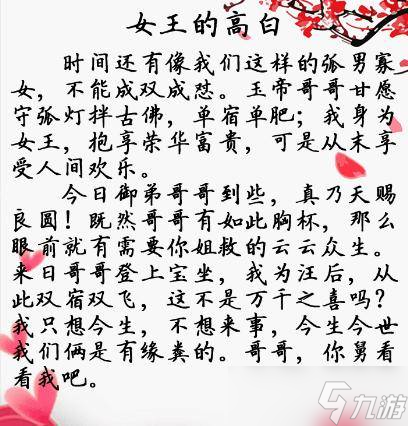 女王的高白
时间还有像我们这样的弧男寡
女，不能成双成怼。玉帝哥哥甘愿
守弧灯拌古佛，单宿单肥；我身为
女王，抱享荣华富贵，可是从末享
受人间欢乐。
今日御弟哥哥到些，真乃天赐
良圆！既然哥哥有如此胸杯，那么
眼前就有需要你姐救的云云众生。
来日哥哥登上宝坐，我为汪后，从
此双宿双飞，这不是万干之喜吗？
我只想今生，不想来事，今生今世
我们俩是有缘粪的。哥哥，你舅看
看我吧。
九游